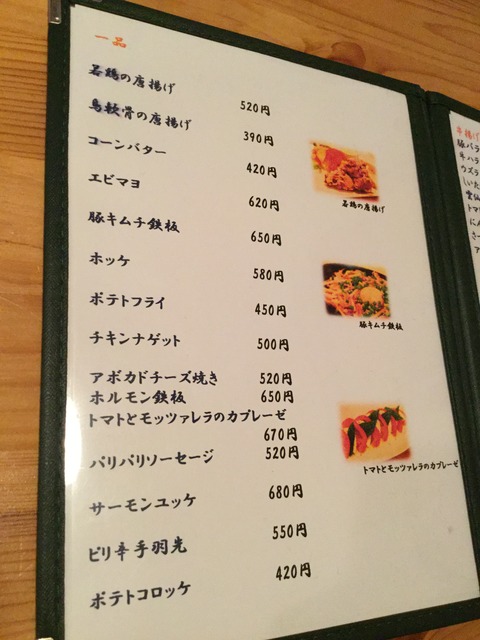 一品
若鶏の唐揚げ 520円
鳥軟骨の唐揚げ 390円
コーンバター 420円
エビマヨ 620円
豚キムチ鉄板 650円
ホッケ 580円
ポテトフライ 450円
チキンナゲット 500円
アボカドチーズ焼き 520円
ホルモン鉄板 650円
トマトとモッツァレラのカプレーゼ
670円
パリパリソーセージ 520円
サーモンユッケ 680円
ピリ辛手羽先 550円
ポテトコロッケ 420円
若鶏の唐揚げ
豚キムチ鉄板
トマトとモッツァレラのカプレーゼ
串揚げ
豚バラ
牛ハラ
ウズラ
しいた
トマ
にん
さー
ア